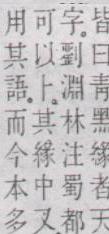 皆曰青黑緣者天
字。劉淵林注蜀都
可以上。其緣中又
用其語。而今本多